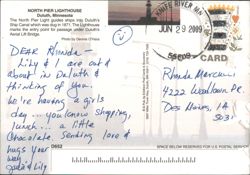 NORTH PIER LIGHTHOUSE
Duluth, Minnesota
The North Pier Light guides ships into Duluth's
Ship Canal which was dug in 1871. The Lighthouse
marks the entry point for passage under Duluth's
Aerial Lift Bridge.
Photo by Dennis O'Hara
JUN 29 2009
CARD
DEAR Rhonda —
Lily & I are out &
about in Duluth &
thinking of you.
We're having a girls
day... you know shopping,
lunch... a little
Chocolate. Sending love &
hugs your
way,
Julie & Lily
Rhonda
4222
Des Moines, IA
5031
SPACE BELOW RESERVED FOR U.S. POSTAL SERVICE